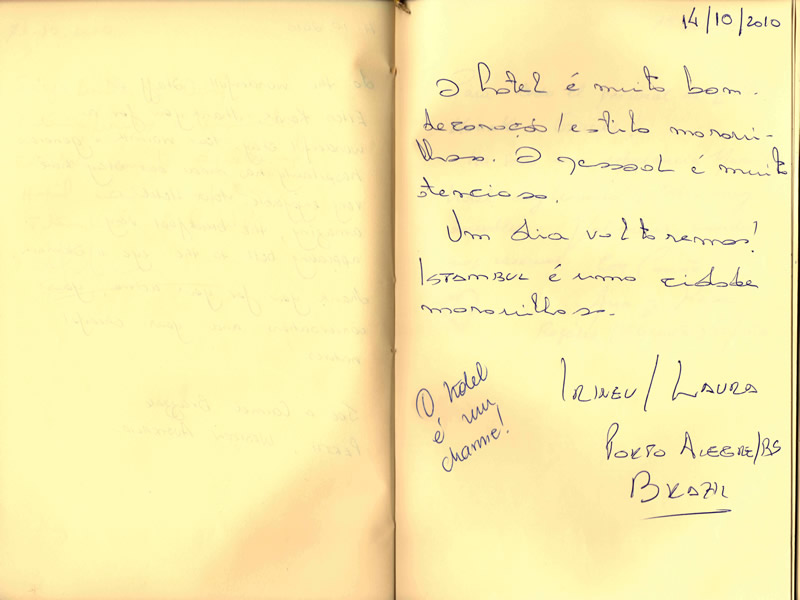 14/10/2010
O hotel é muito bom.
decoração/estilo maravi-
lhoso. O pessoal é muito
atencioso.
Um dia voltaremos!
ISTAMBUL é uma cidade
maravilhosa.
O hotel
é um
charme!
IRINEU/LAURA
PORTO ALEGRE/RS
BRAZIL